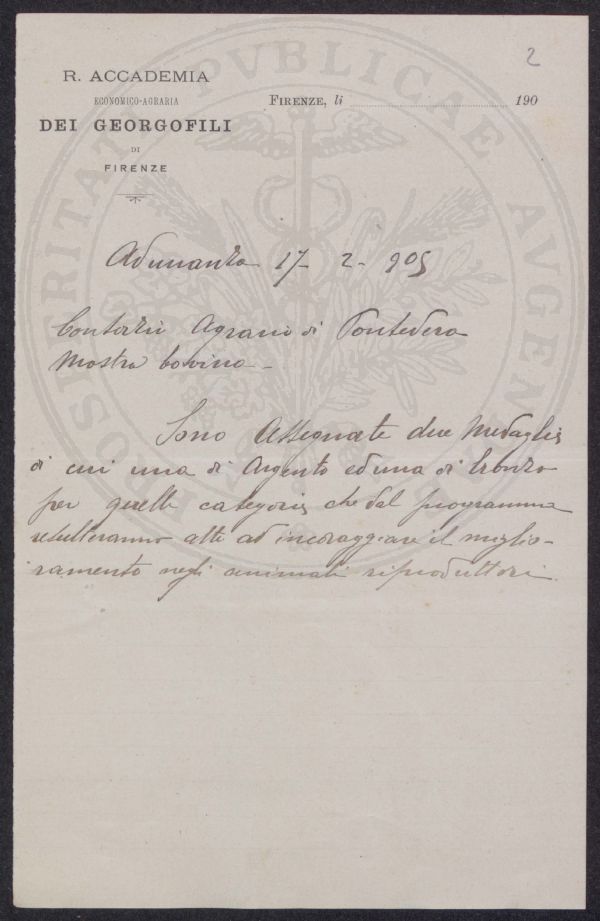 2
R. ACCADEMIA
ECONOMICO-AGRARIA
DEI GEORGOFILI
DI
FIRENZE
FIRENZE, li 190
PROSPERITATI PVBLICAE AVGENDAE
Adunanza 17- 2- 905
Agrario di Pontedera
Mostra bovina -
Sono Assegnate due Medaglie
di cui una di Argento ed una di bronzo
per quelle categorie che dal programma
resulteranno atte ad incoraggiare il miglio-
ramento negli animali riproduttori.